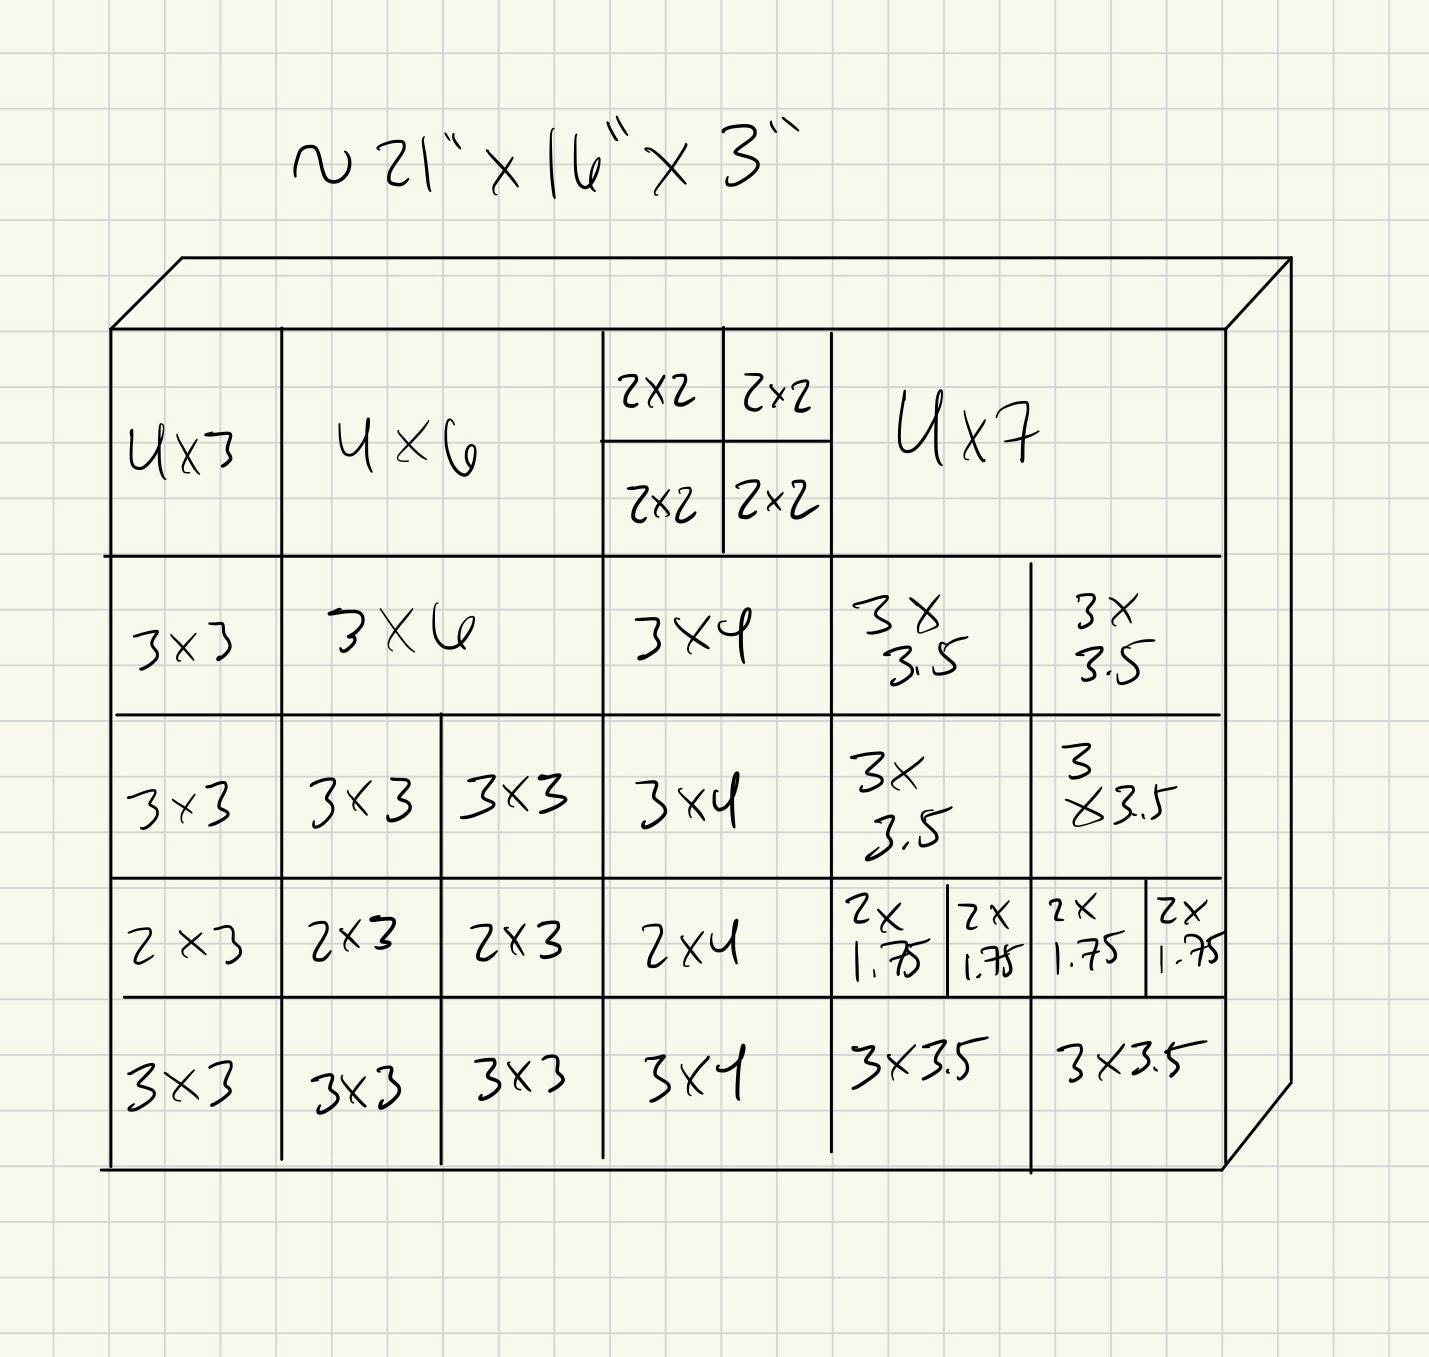 ~ 21" x 16" x 3"
4x3
4x6
2x2 2x2
2x2 2x2
4x7
3x3
3x6
3x4
3x
3.5
3x
3.5
3x3
3x3
3x3
3x4
3x
3.5
3
x3.5
2x3
2x3
2x3
2x4
2x
1.75
2x
1.75
2x
1.75
2x
1.75
3x3
3x3
3x3
3x4
3x3.5
3x3.5